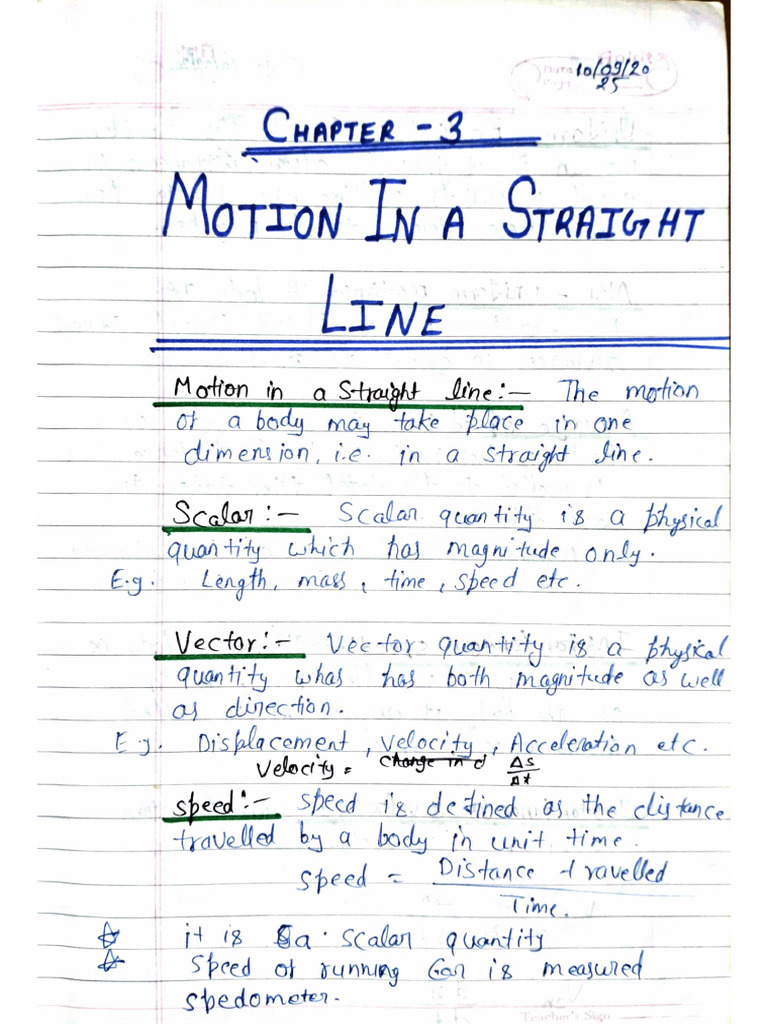 10/09/20
25
CHAPTER - 3
MOTION IN A STRAIGHT
LINE
Motion in a Straight line:- The motion
of a body may take place in one
dimension, i.e. in a straight line.
Scalar:- Scalar quantity is a physical
quantity which has magnitude only.
E.g. Length, mass, time, speed etc.
Vector:- Vector quantity is a physical
quantity whas has both magnitude as well
as direction.
E.g. Displacement, Velocity, Acceleration etc.
Velocity = change in d Δs/Δt
Speed:- Speed is defined as the distance
travelled by a body in unit time.
Speed = Distance travelled
Time.
it is a scalar quantity
Speed of running Car is measured
spedometer.
Teacher's Sign